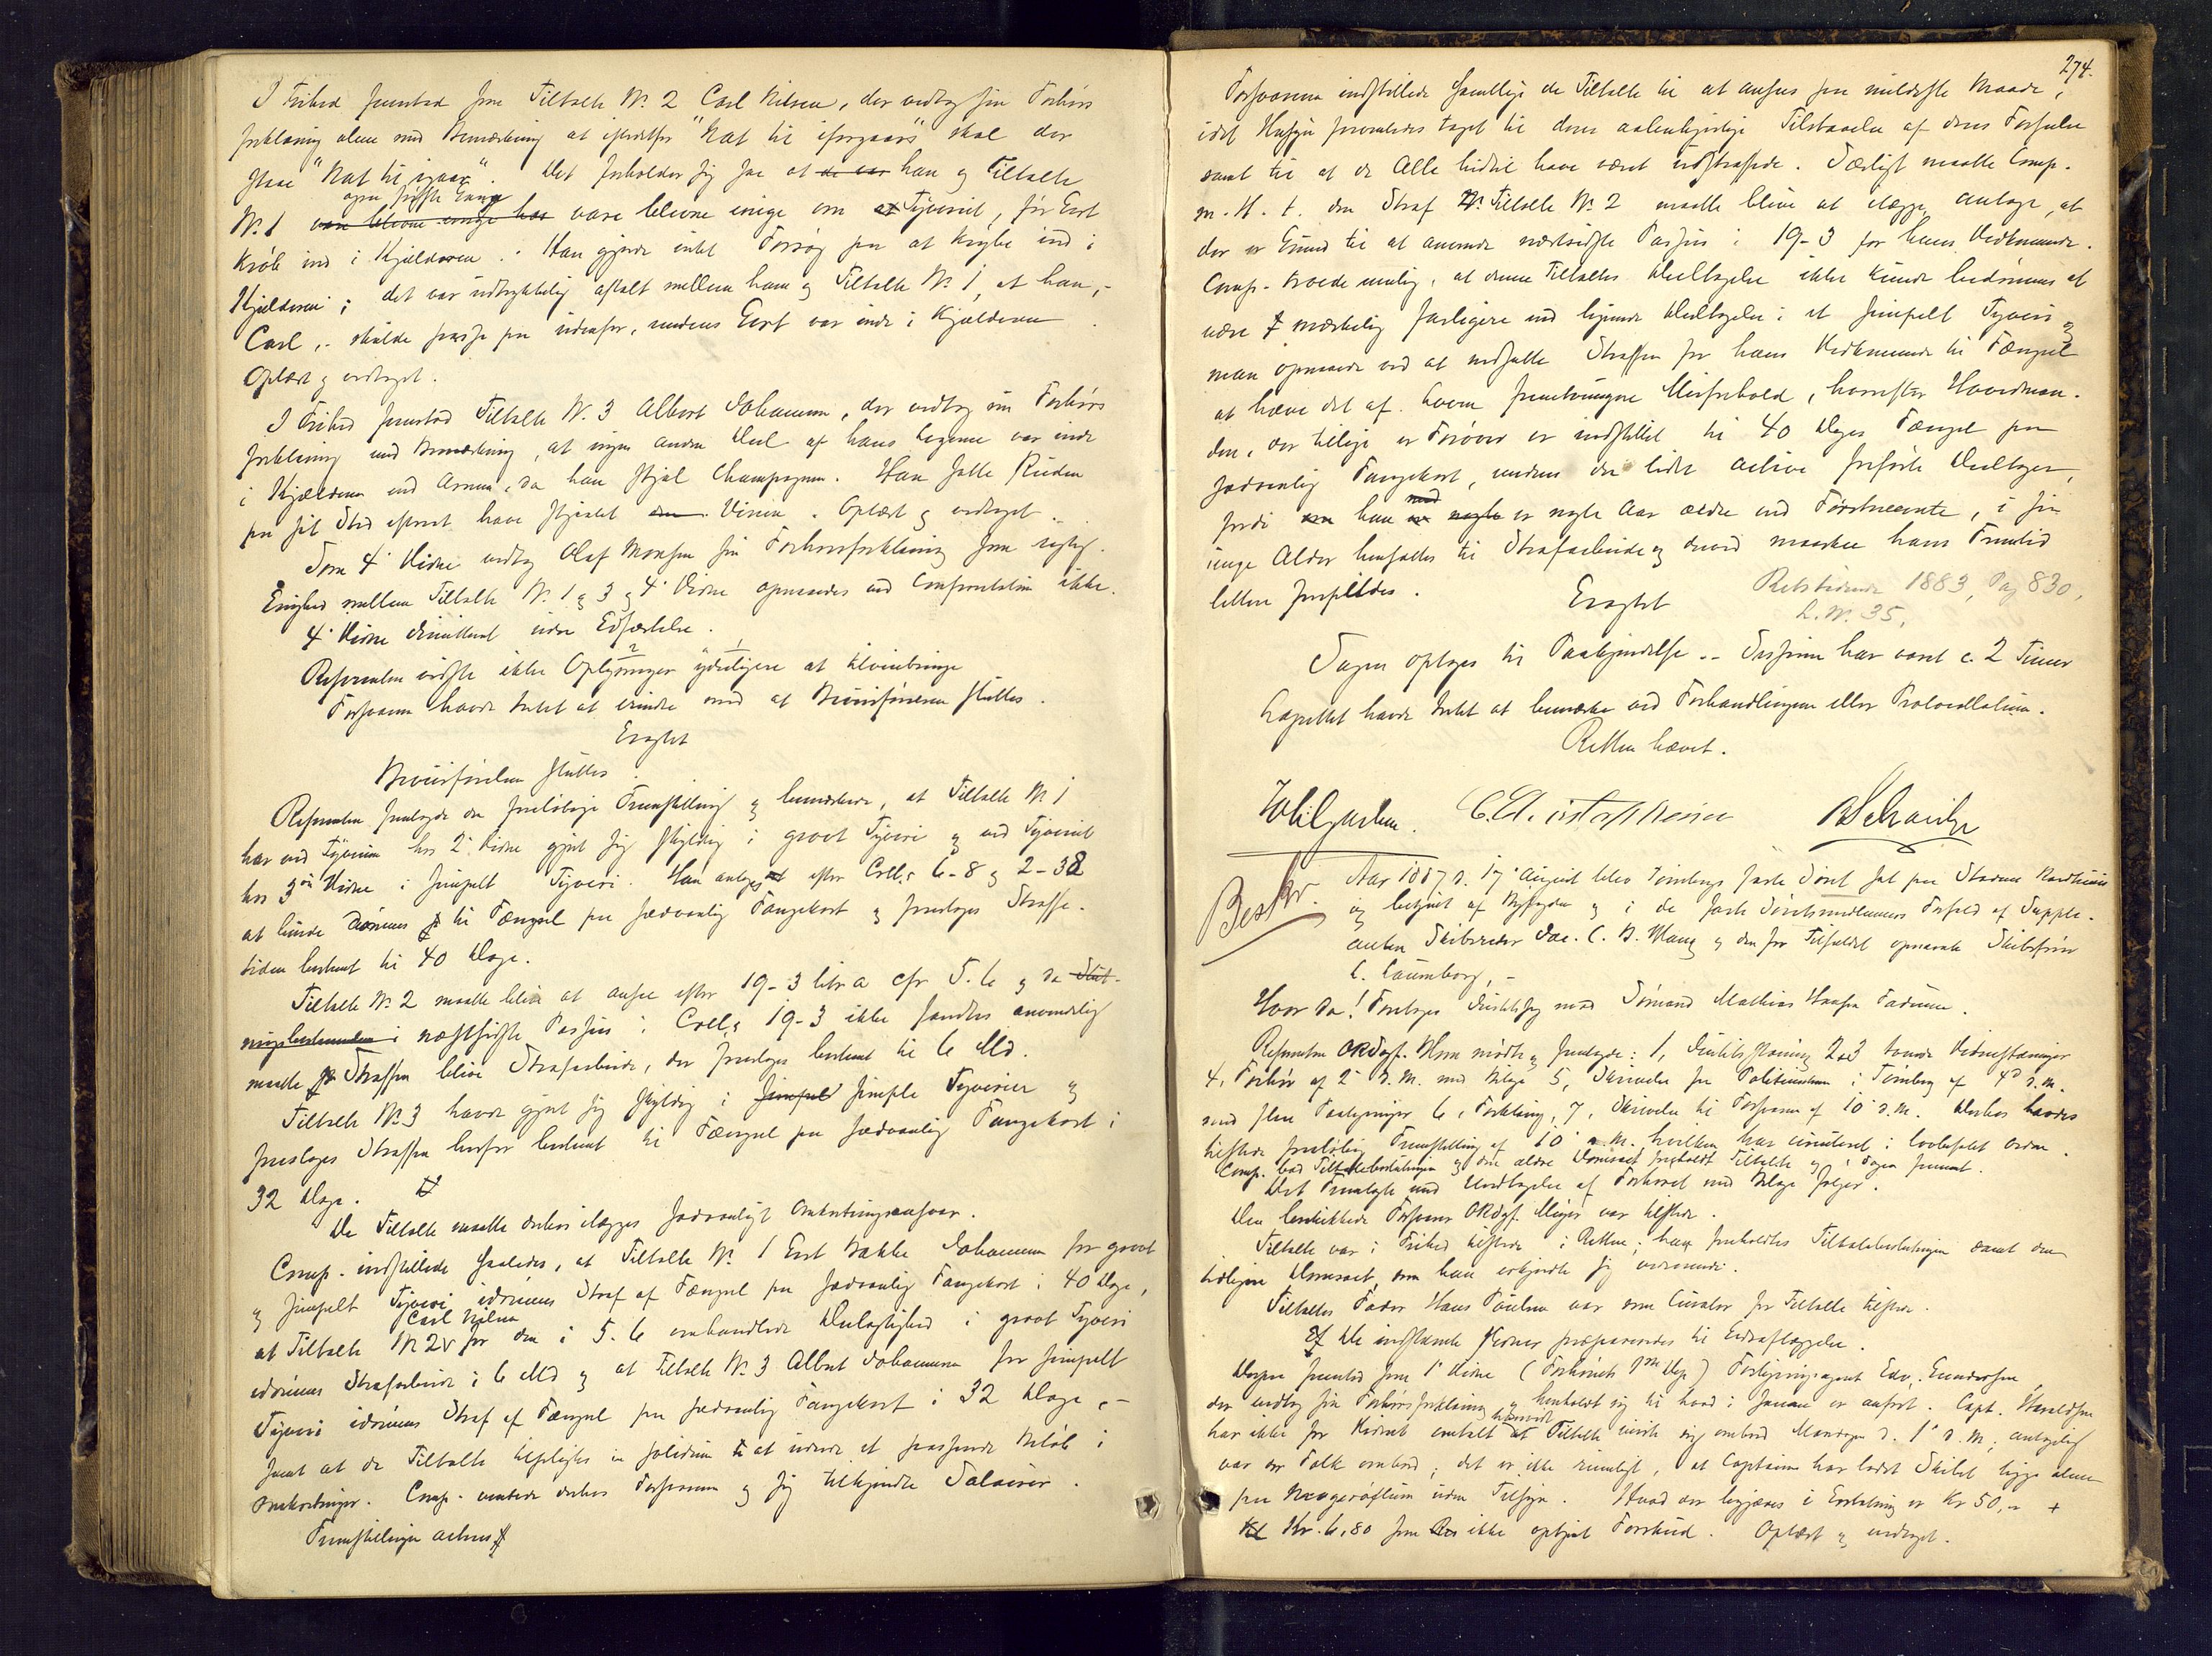 I Frihed fremstod som Tiltalte No. 2 Carl Nilsen, der vedtog sin Forhørs
forklaring alene med Bemærkning at istedetfor "Nat til iforgaars" skal der
staa "Nat til igaar". Det forholder sig saa at de var han og Tiltalte
ogsaa første Gang
No. 1 vare blevne enige har vare blevne enige om at Tyveriet, før Emt
krøb ind i Kjælderen. Han gjorde intet Forsøg paa at krybe ind i
Kjælderen; det var udtrykkelig aftalt mellem ham og Tiltalte No. 1, at han,-
Carl,- skulde passe paa udenfor, medens var inde i Kjælderen
Oplæst og vedtaget.
I Frihed fremstod Tiltalte No. 3 Albert Johannesen, der vedtog sin Forhørs
forklaring med Bemærkning, at ingen anden Deel af hans Legeme var inde
i Kjælderen end Armen, da han stjal Champagnen. Han satte Ruden
paa sit Sted efterat have stjaalet den Vinen. Oplæst og vedtaget.
Som 4' Vidne vedtog Olaf Monsen sin Forhørsforklaring som rigtig.
Enighed mellem Tiltalte No. 1 og 3 og 4' Vidne opnaaedes ved Confrontation ikke.
4' Vidne dimitteret uden Edfæstelse.
Referenten vidste ikke Oplysninger yderligere at tilveiebringe
Forsvareren havde Intet at erindre mod at Bevisførelsen sluttes.
Eragtet
Bevisførelsen sluttes.
Referenten fremlagde den foreløbige Fremstilling og bemærkede, at Tiltalte No 1
har ved Tyveriet hos 2' Vidne gjort sig skyldig i grovt Tyveri og ved Tyveriet
hos 3die Vidne i simpelt Tyveri. Han antages at efter Crell.s 6-8 og 2-38
at burde dømmes til Fængsel paa sædvanlig Fangekost og foresloges Straffe-
tiden bestemt til 40 Dage.
Tiltalte No. 2 maatte blive at ansee efter 19-3 litr a cfr 5.6 og da Slut-
ningsbestemmelsen i næstsidste Passus i Crell.s 19-3 ikke fandtes anvendelig
maatte Straffen blive Strafarbeide, der foresloges bestemt til 6 Md.
Tiltalte No. 3 havde gjort sig skyldig i simpel simple Tyverier og
foresloges Straffen herfor bestemt til Fængsel paa sædvanlig Fangekost i
32 Dage.
De Tiltalte maatte derhos ilægges sædvanligt Omkostningsansvar.
Comp. indstillede saaledes, at Tiltalte No. 1 Bakke Johannesen for grovt
og simpelt Tyveri idømmes Straf af Fængsel paa sædvanlig Fangekost i 40 Dage,
Carl Nilsen
at Tiltalte No 2 for den i 5.6 omhandlede Delagtighed i grovt Tyveri
idømmes Strafarbeide i 6 Md og at Tiltalte No. 3 Albert Johannesen for simpelt
Tyveri idømmes Straf af Fængsel paa sædvanlig Fangekost i 32 Dage,-
samt at de Tiltalte tilpligtes in solidum at udrede et passende Beløb i
Omkostninger. Comp. ventede derhos Forsvareren og sig tilkjendte Salairer.
Fremstillingen acteres
274.
Forsvareren indstillede samtlige de Tiltalte til at ansees paa mildeste Maade,
idet Hensyn formentes taget til deres aabenhjertige Tilstaaelse af deres Forseelse
samt til at de Alle hidtil have været ustraffede. Særligt maatte Comp.
m. H. t. den Straf Tiltalte No. 2 maatte blive at ilægge antage, at
der er Grund til at anvende næstsidste Passus i 19-3 for hans Vedkommende.
Comp. troede nemlig, at denne Tiltaltes Deeltagelse ikke kunde bedømmes at
være mærkelig farligere end lignende Deeltagelse i et simpelt Tyveri og
man opnaaede ved at nedsætte Straffen for hans Vedkommende til Fængsel
at hæve det af Loven fremtvungne Misforhold, hvorefter Hovedman-
den, der tillige er Forøver er indstillet til 40 Dages Fængsel paa
sædvanlig Fangekost, medens den lidet active forførte Deeltager,
med
fordi han er nogle er nogle Aar ældre end Førstnævnte, i sin
unge Alder hensattes til Strafarbeide og derved maaskee hans Fremtid
lettere forspildes.
Retstidende 1883, Pag 830,
Eragtet
L. No. 35.
Sagen optages til Paakjendelse.- Sessionen har varet c. 2 Timer
Lagrettet havde Intet at bemærke ved Forhandlingen eller Protocollationen.
Retten hævet.
C. Christophersen
Beskr. Aar 1887 d. 17' August blev Tønsbergs faste Søret sat paa Stadens Raadhuus
og betjent af Byfogden og i de faste Søretsmedlemmers Forfald af Supple-
anten Skibsreder Jac. C. B. Maug og den for Tilfældet opnævnte Skibsfører
C. Caumborg,-
Hvor da! Foretoges Justitssag mod Sømand Mathias Hansen
Referenten ORSagf. Horn mødte og fremlagde: 1, Justitsstævning 2 og 3 tvende Vidnestævninger
4, Forhør af 2' d.M. med Bilage 5, Skrivelse fra Politimesteren i Tønsberg af 4de d.M.
med flere Paategninger 6, Forklaring, 7, Skrivelse til Forsvareren af 10' d.M. Derhos havdes
tilstede foreløbig Fremstilling af 10' d.M. hvilken har circuleret i lovbefalet Orden.
Comp. bad Tiltalebeslutningen og den ældre Domsact foreholdt Tiltalte og Sagen fremmet.
Det Fremlagte med Undtagelse af Forhøret med Bilage følger.
Den beskikkede Forsvarer ORSagf. Meyer var tilstede.
Tiltalte var i Frihed tilstede i Retten; ham foreholdtes Tiltalebeslutningen samt den
tidligere Domsact, som han erkjendte sig vedkommende.
Tiltaltes Fader Hans Paulsen var som Curator for Tiltalte tilstede.
De indstævnte Vidner præpareredes til Edsaflæggelse.
Derpaa fremstod som 1' Vidne (Forhørets 1ste Dep.) Forhyringsagent Edv. Gundersen
der vedtog sin Forhørsforklaring og henholdt sig til hvad i Samme er anført. Capt. Haraldsen
har ikke for Vidnet omtalt at Tiltalte indfandt sig ombord Mandagen d. 1' d.M.; antagelig
var der Folk ombord; det er ikke rimeligt, at Capteinen har ladet Skibet ligge alene
paa uden Tilsyn. Hvad der begjæres i Erstatning er Kr 50,- +
Kr. 6,80 som ikke optjent Forskud. Oplæst og vedtaget.